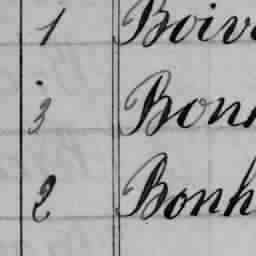 1 Boiv
3 Bon
2 Bonh